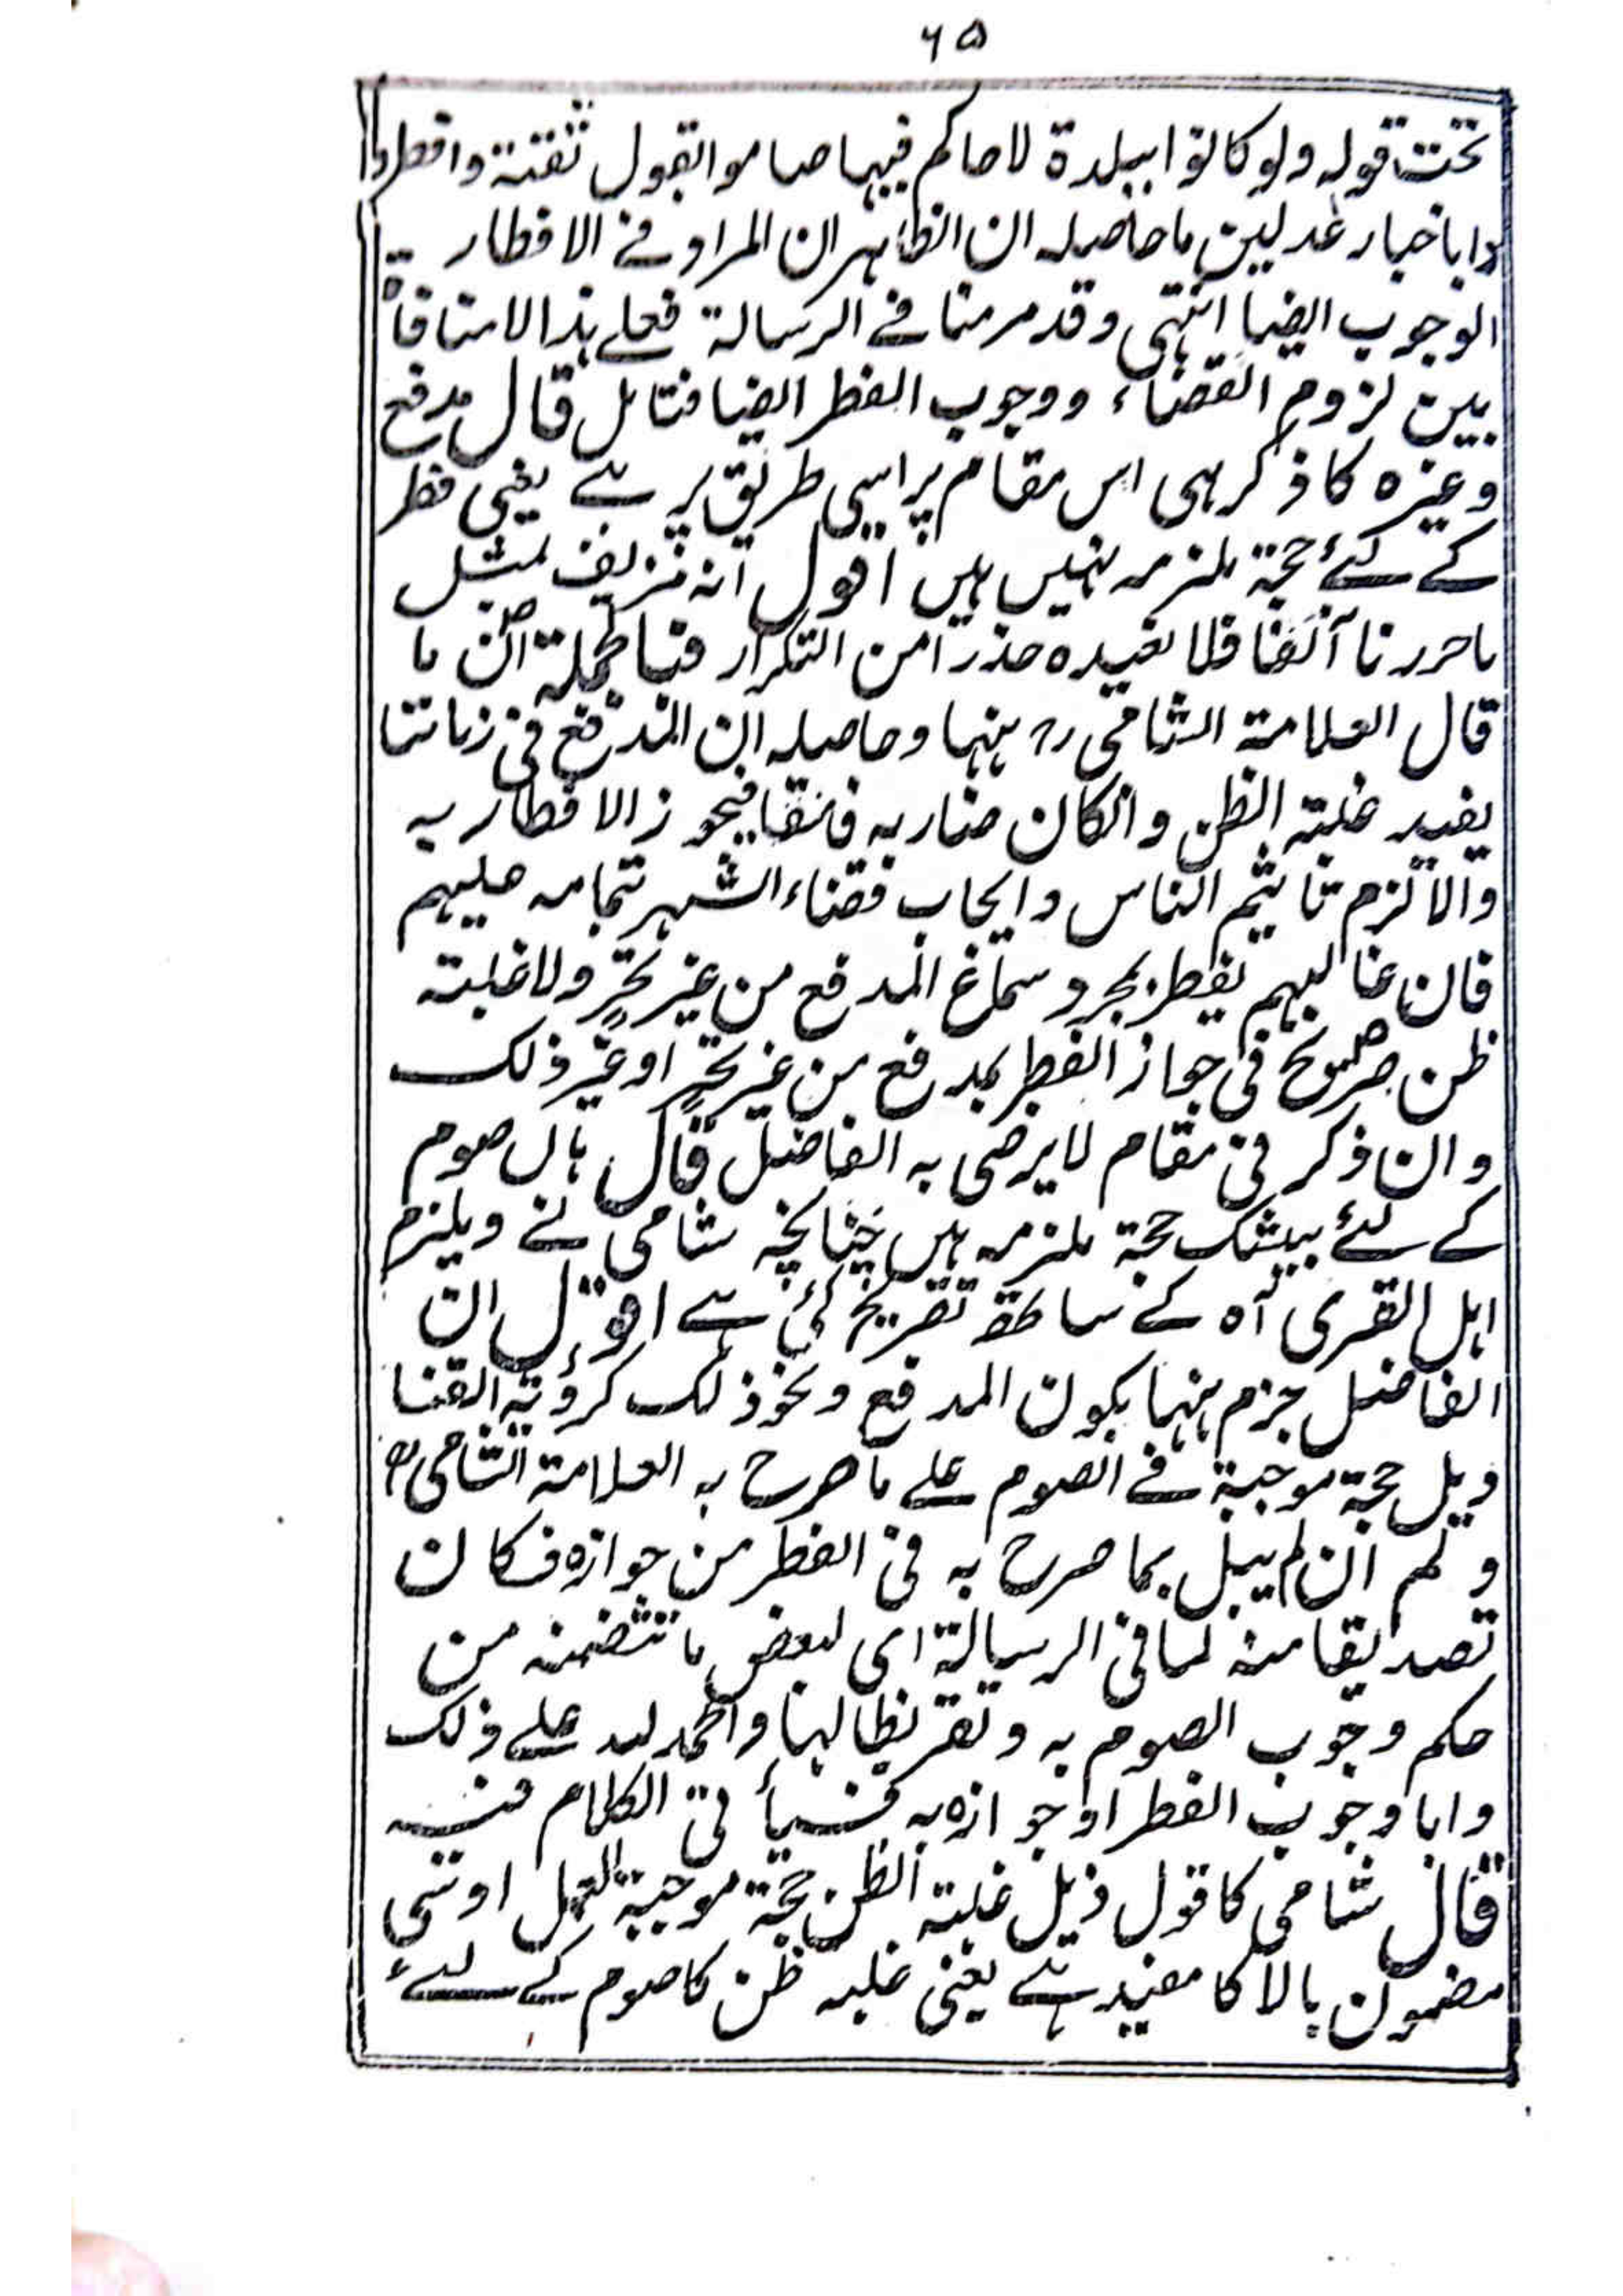 ٦٥
تحت قوله ولو كانوا ببلدة لا حاكم فيها صاموا بقول ثقة وافطروا
باخبار عدلين ما حاصله ان الظاهر ان المراد في الافطار
الوجوب ايضا انتهى وقد مر منا في الرسالة فعلى هذا لا منافاة
بين لزوم القضاء ووجوب الفطر ايضا فتامل قال مدفع
وغيره کا ذکر بهی اس مقام پر اسی طریق پر ہے یعنی فطر
کے لئے حجة ملزمہ نہیں ہیں اقول انه تزييف بمثل
ما حررنا آنفا فلا نعيده حذرا من التكرار فبالجملة ان ما
قال العلامة الشامی رح ههنا وحاصله ان المدفع فی زماننا
يفيد غلبة الظن وان كان ضاربه فاسقا فيجوز الافطار به
والا لزم تاثيم الناس وايجاب قضاء الشهر بتمامه عليهم
فان غالبهم يفطر بمجرد سماع المدفع من غير تحر ولا غلبة
ظن صريح فی جواز الفطر بمدفع من غير تحر او غير ذلک
وان ذكر فی مقام لا يرضى به الفاضل قال ہاں صوم
کے لئے بیشک حجة ملزمہ ہیں چنانچہ شامی نے ويلزم
اہل القرى آه کے ساتھ تصریح کی ہے اقول ان
الفاضل جزم ههنا بكون المدفع ونحو ذلک كرؤية القنا
ديل حجة موجبة فی الصوم علی ما صرح به العلامة الشامی رح
و لم يبل بما صرح به فی الفطر من جوازه فكان
تصديقا منه لما فی الرسالة ای لبعض ما تتضمنه من
حكم وجوب الصوم به وتقريظا لها والحمد لله علی ذلک
واما وجوب الفطر او جوازه به فسيأتی الكلام فيه
قال شامی کا قول ذیل غلبة الظن حجة موجبة للعمل اوسی
مضمون بالا کا مفید ہے یعنی غلبہ ظن کا صوم کے لئے